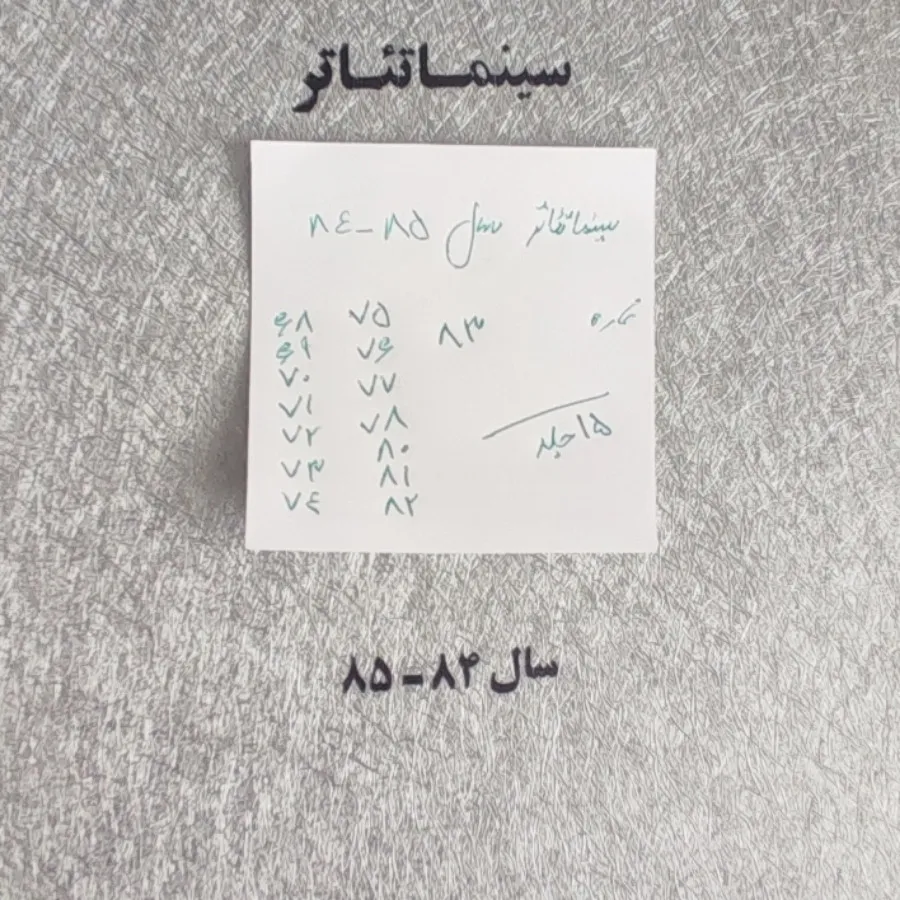 سینماتئاتر
سینماتئاتر سال ۸۵-۸٤
شماره ۸۳ ۷۵ ۶۸
۷۶ ۶۹
۷۷ ۷۰
۷۸ ۷۱
۱۵ جلد
۸۰ ۷۲
۸۱ ۷۳
۸۲ ۷٤
سال ۸۴-۸۵